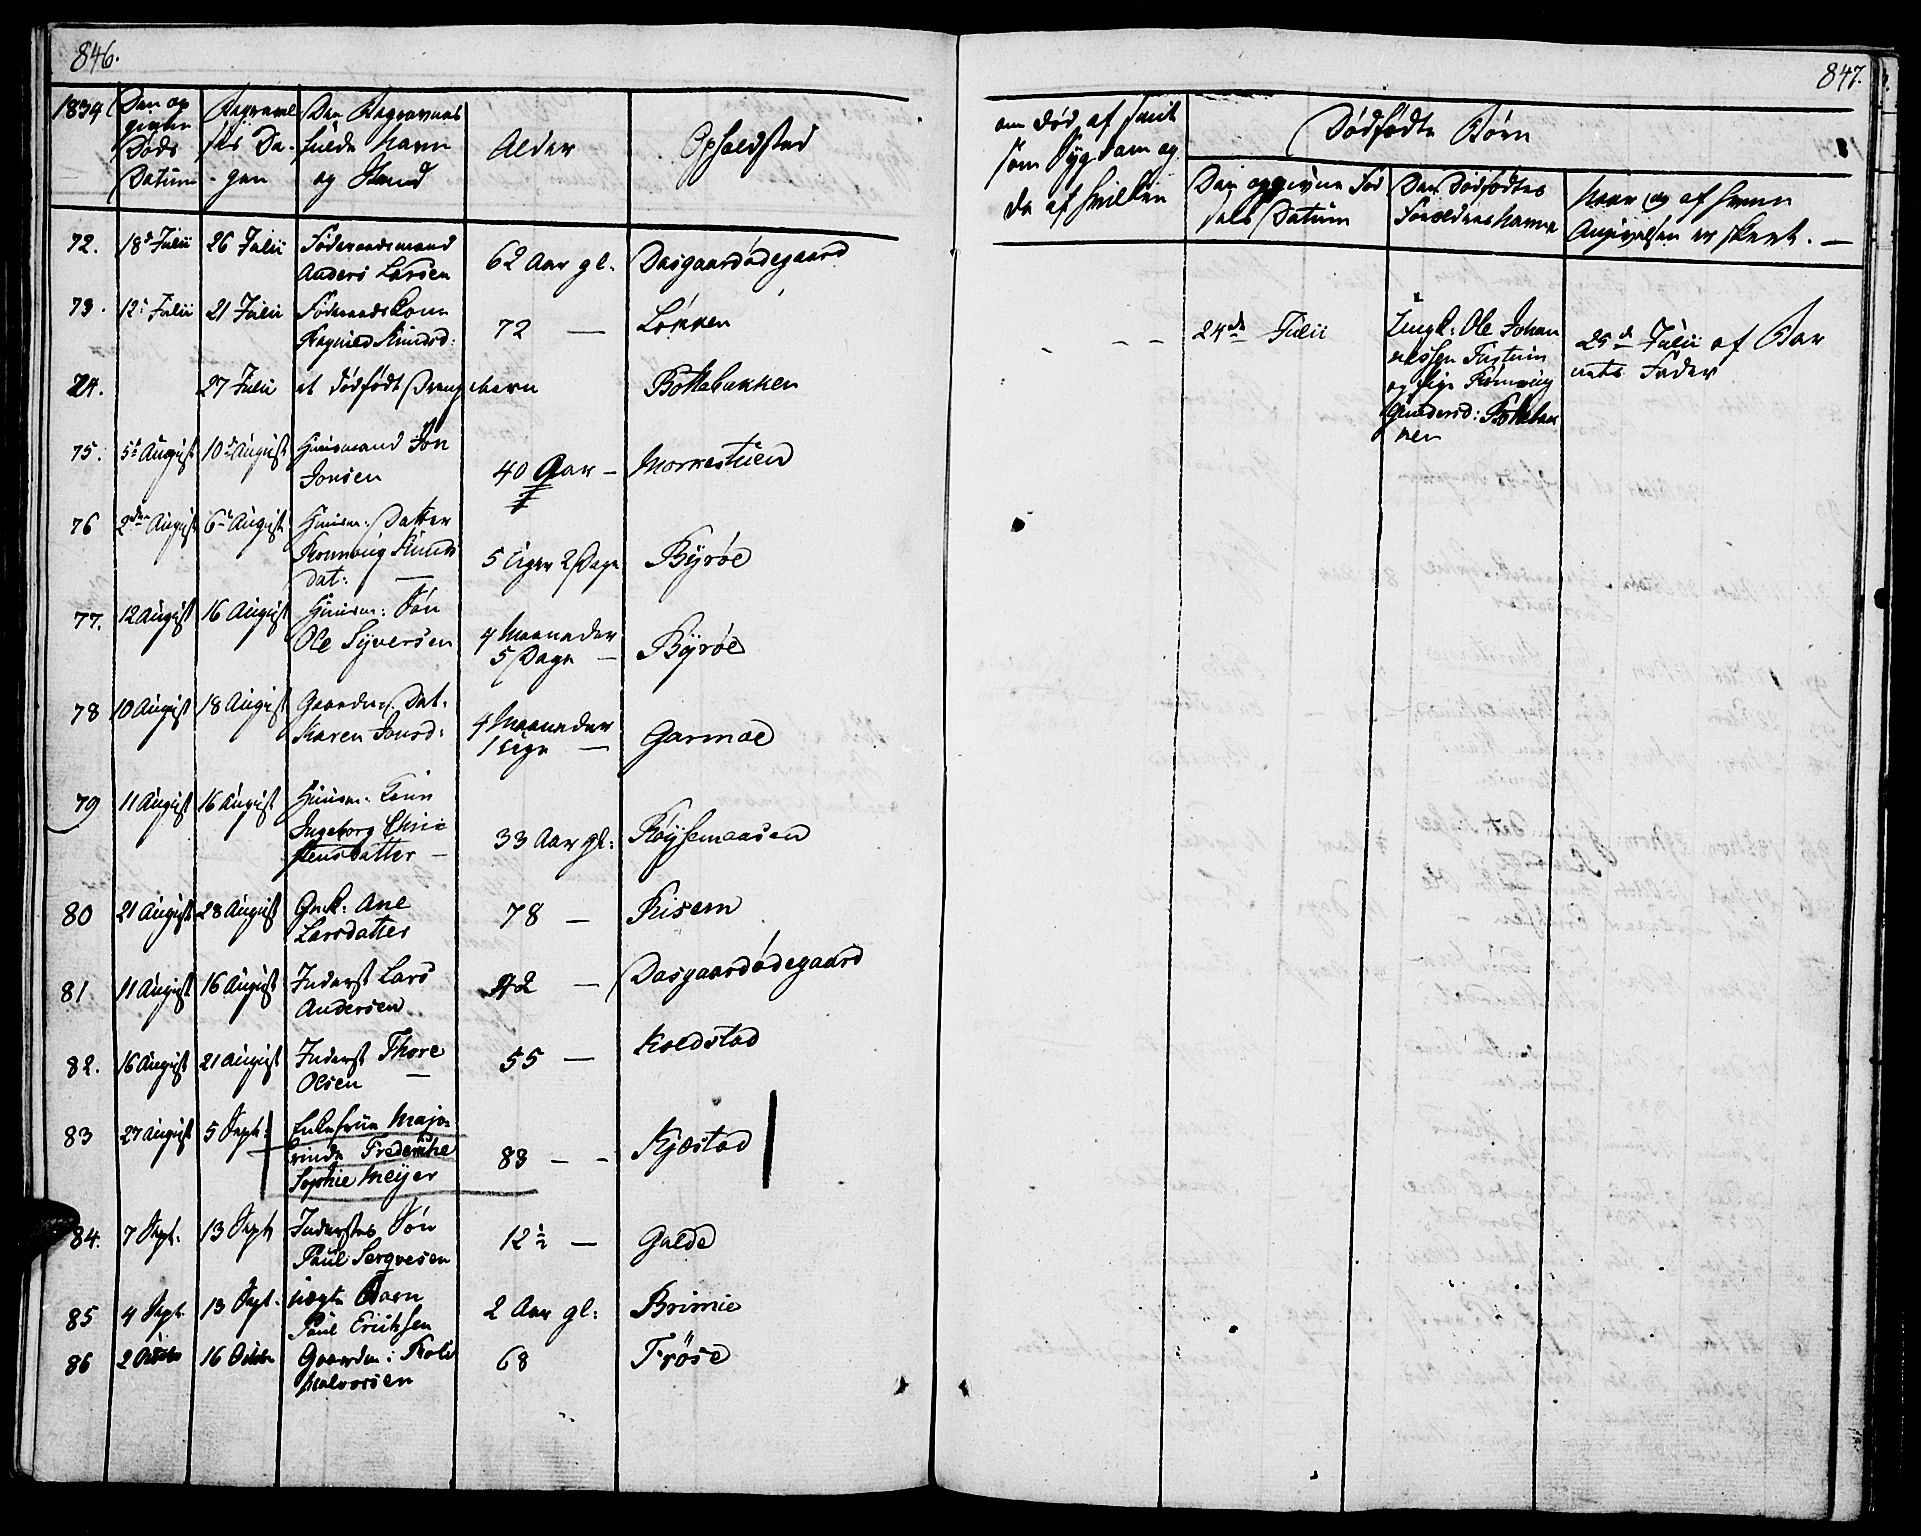 846.
1834 Den op Begravel Den Begravnes
givne
Døds sks Da- fulde Navn Alder Opholdsted
Datum - gen og Stand
72. 18de Julii 26 Julii Føderaadsmand
Anders Larsen 62 Aar gl. Dasgaardødegaard
73. 12te Julii 21 Julii Føderaadskone
Ragnild Knudsd: 72 — Løkken
74. 27 Julii et dødfødt Drengebarn Bottebakken
75. 5te August 10de August Huusmand Jon
Jonsen 40 Aar — Morkestuen
76 2den August 6te August Huusm: Datter
Knudsdat: — 5 Uger 2 Dage Byrøe
77. 12 August 16 August Huusm: Søn
Ole Syversen 4 Maaneder
5 Dage — Byrøe
78 10 August 18 August Gaardm. Dat.
Karen Jonsd: 4 Maaneder
1 Uge — Garmoe
79 11 August 16 August Huusm: Kone
Ingeborg Chri
stensdatter — 33 Aar gl:
80 21 August 28 August Gm.k: Ane
Larsdatter 78 — Risem
81 11 August 16 August Inderst Lars
Andersen 42 — Dasgaardødegaard
82. 16 August 21 August Inderst Thore
Olsen — 55 — Koldstad
83 27 August 5 Sept: Enkefrue Majo-
rinde Frederikke
Sophie Meyer 83 — - Kjæstad
84. 7 Sept. 13 Sept Inderstes Søn
Paul Sergvesen 12½ — Galde
85 4 Sept. 13 Sept. uægte Barn
Paul Erichsen 2 Aar gl: Brimie
86 2 Octobr 16 Octobr Gaardm:
Halvorsen 68 Frøse
847.
om død af saadan
som Sygdom og
da af hvilken
Dødfødte Børn
Den opgivne Fød
sels Datum
Den Dødfødtes
Forældres Navne
Naar og af hvem
Angivelsen er skeet. —
24de Julii
Ungk: Ole Johan
nessen
og Pige Rønnoug
Gundersd: Bottebak
ken
25de Julii af Bar
nets Fader